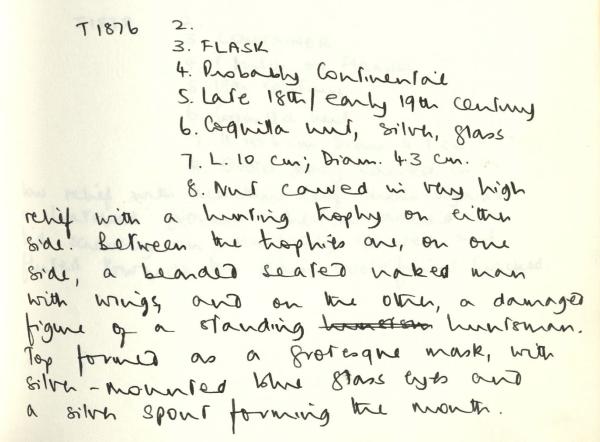 T1876 2.
3. FLASK
4. Probably Continental
5. Late 18th / early 19th century
6. Coquilla nut, silver, glass
7. L. 10 cm; Diam. 4.3 cm.
8. Nut carved in very high
relief with a hunting trophy on either
side. Between the trophies are, on one
side, a bearded seated naked man
with wings, and on the other, a damaged
figure of a standing huntsman.
Top formed as a grotesque mask, with
silver-mounted blue glass eyes and
a silver spout forming the mouth.